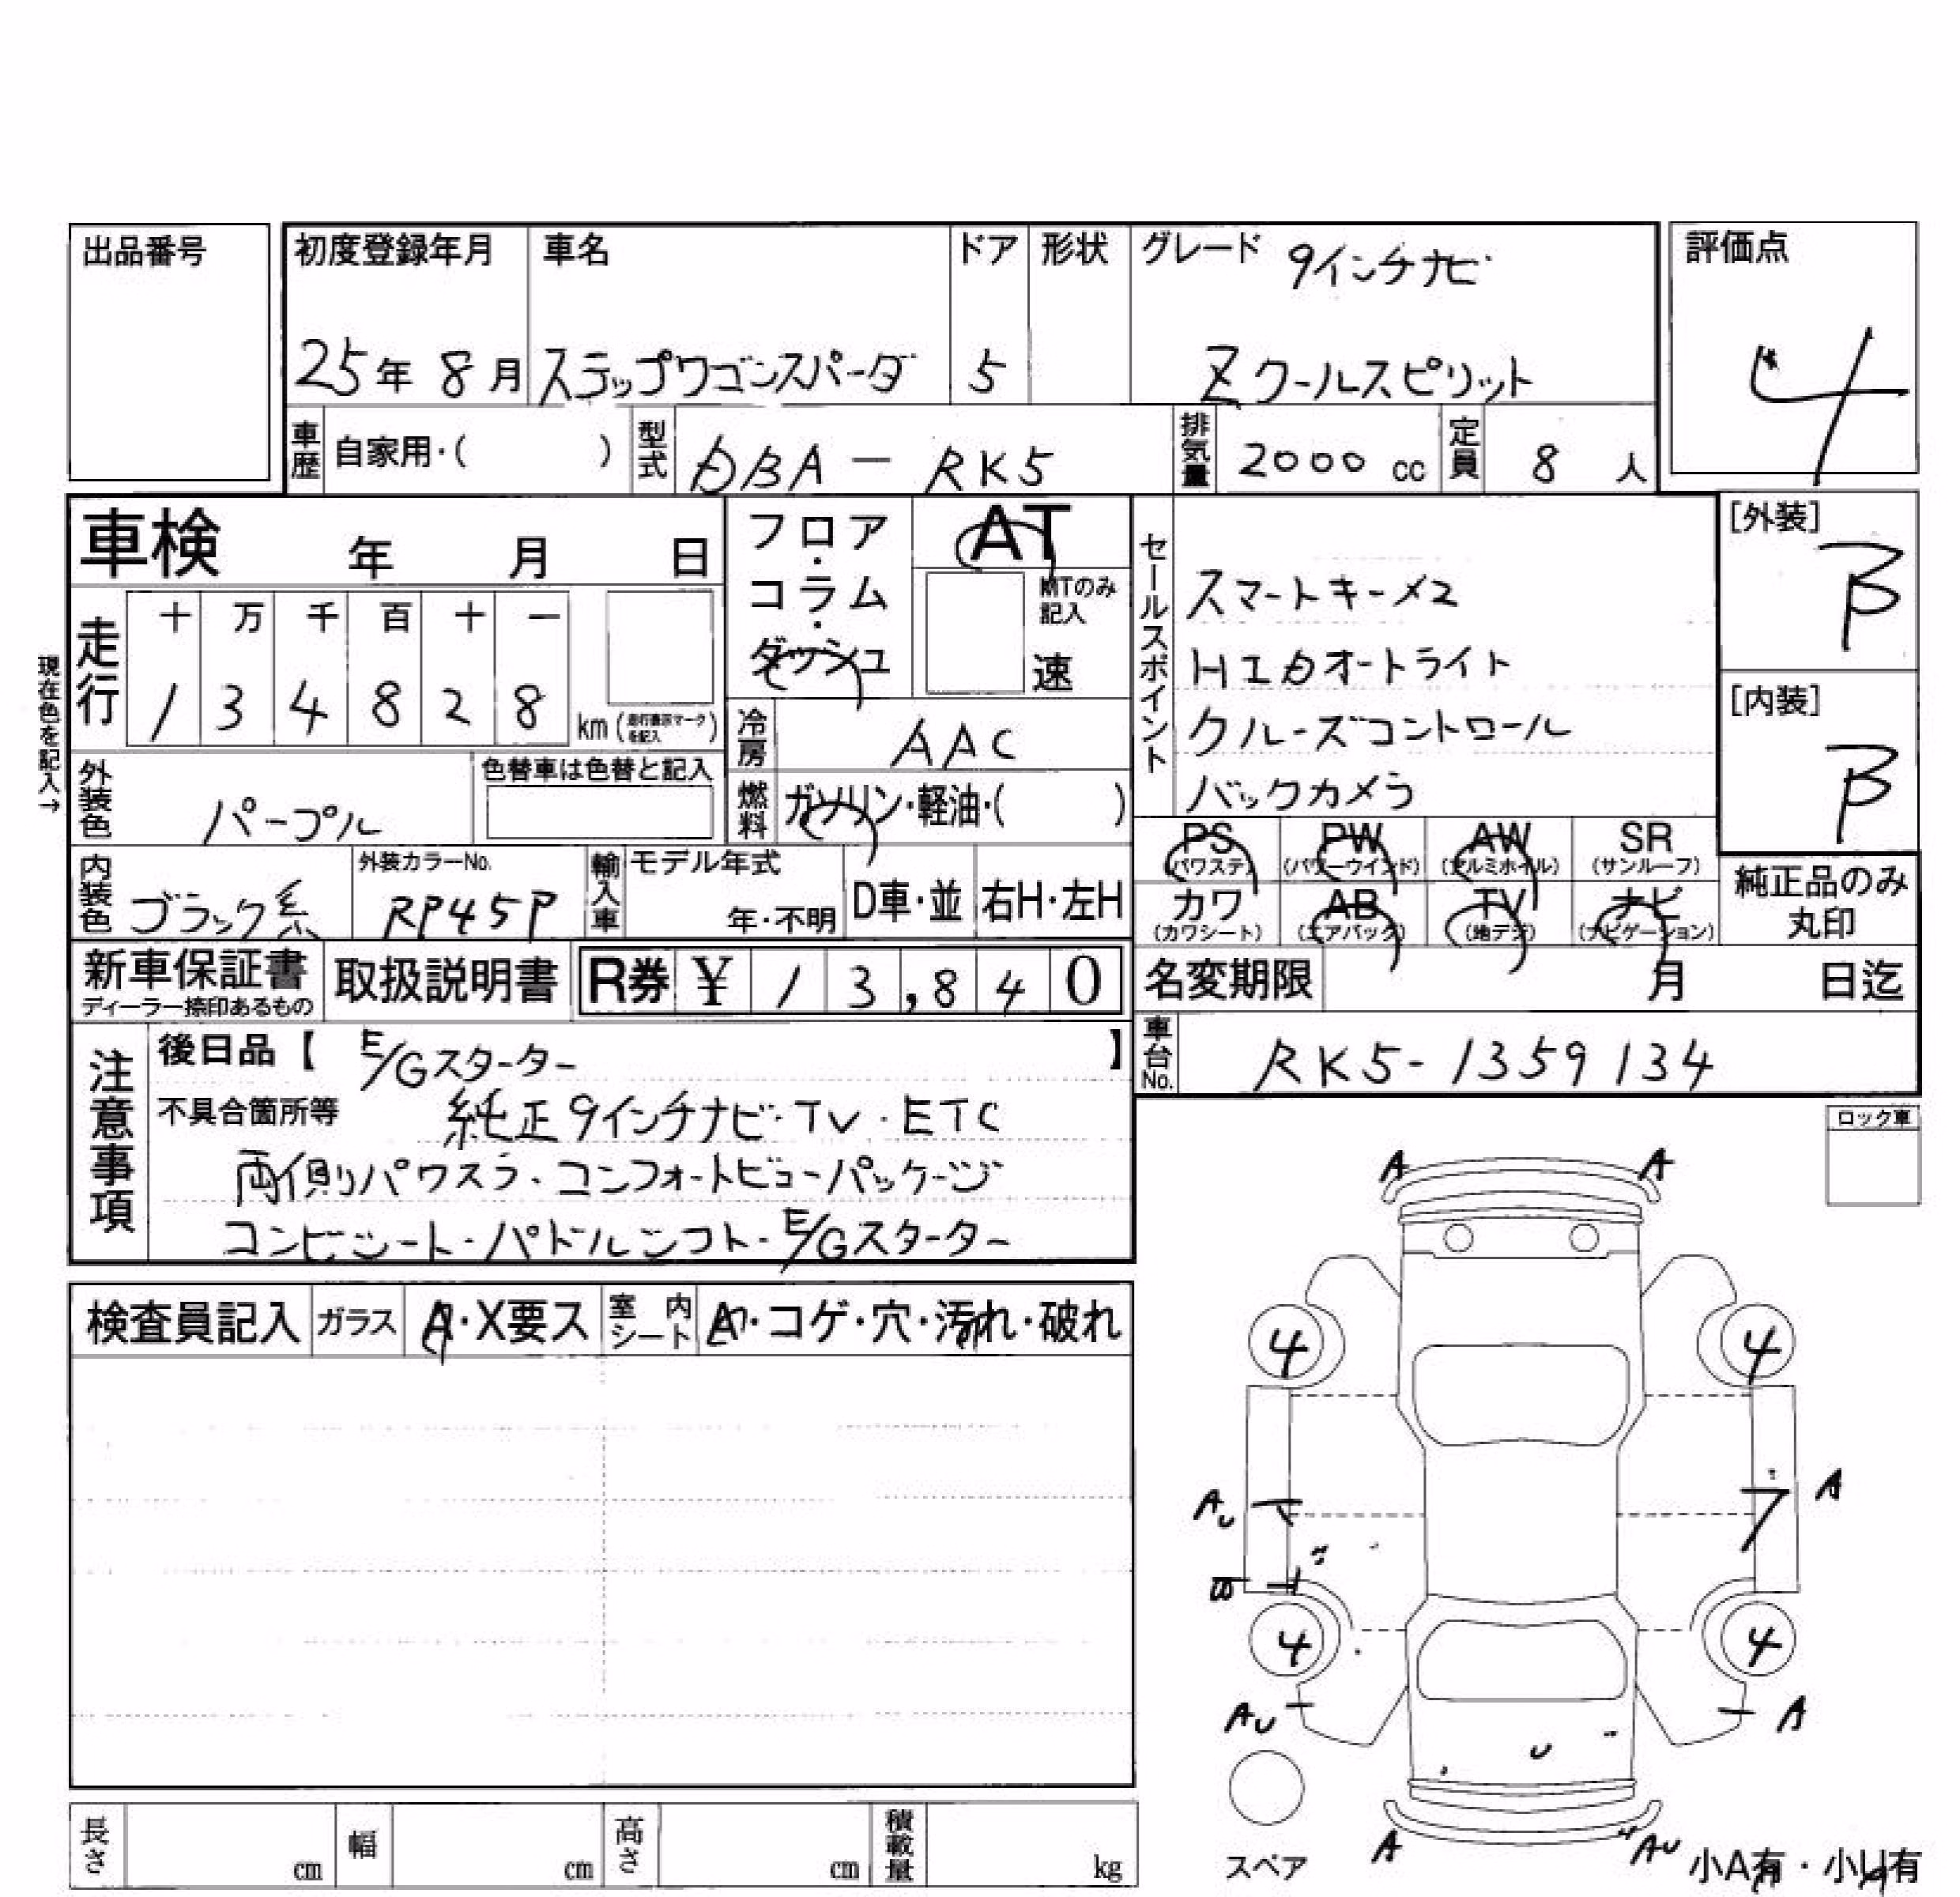 出品番号
初度登録年月 車名 ドア 形状 グレード 9インチナビ 評価点
25年 8月 ステップワゴンスパーダ 5 Zクールスピリット 4
車歴 自家用・( ) 型式 DBA-RK5 排気量 2000 cc 定員 8 人
車検 年 月 日
フロア・コラム・ダッシュ AT
MTのみ記入 速
セールスポイント
スマートキー×2
HIDオートライト
クルーズコントロール
バックカメラ
[外装] B
[内装] B
現在色を記入→
走行 十 万 千 百 十 一
1 3 4 8 2 8 km (走行表示マークを記入)
冷房 AAC
燃料 ガソリン・軽油・( )
外装色 パープル 色替車は色替と記入
内装色 ブラック系 外装カラーNo. RP45P 輸入車 モデル年式 年・不明 D車・並 右H・左H
PS (パワステ) PW (パワーウインド) AW (アルミホイル) SR (サンルーフ)
カワ (カワシート) AB (エアバック) TV (地デジ) ナビ (ナビゲーション)
純正品のみ丸印
新車保証書 ディーラー捺印あるもの 取扱説明書 R券 ¥ 1 3,8 4 0
名変期限 月 日迄
車台No. RK5-1359134
注意事項
後日品【 E/Gスターター 】
不具合箇所等 純正9インチナビ・TV・ETC
両側パワスラ・コンフォートビューパッケージ
コンビシート・パドルシフト・E/Gスターター
ロック車
検査員記入 ガラス A・X要ス 室内シート A・コゲ・穴・汚れ・破れ
A A
4 4
AU A
4 4
AU A
U
A AU
スペア
小A有・小U有
長さ cm 幅 cm 高さ cm 積載量 kg